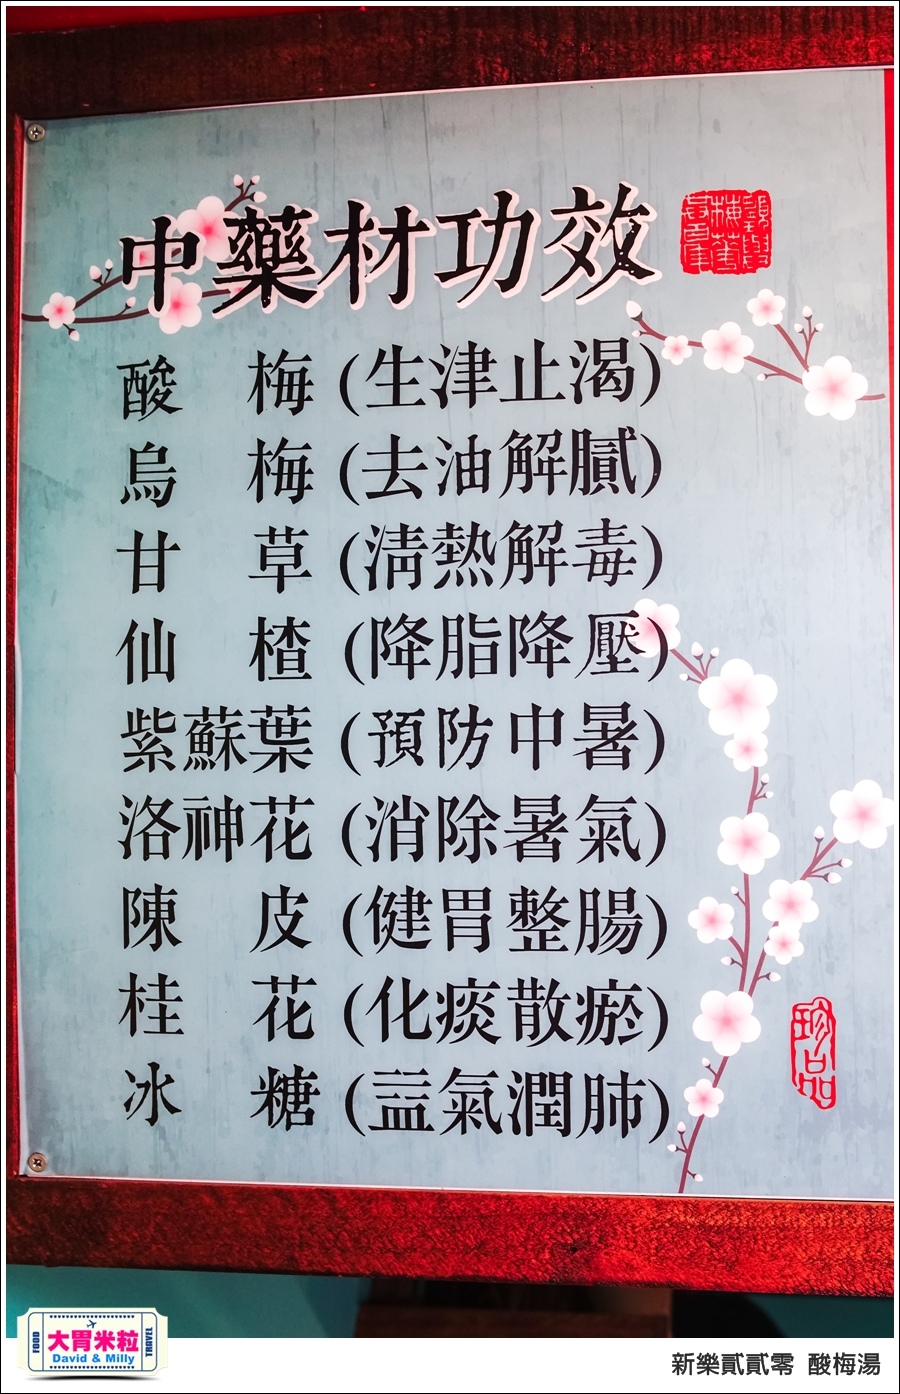 中藥材功效
酸梅(生津止渴)
烏梅(去油解膩)
甘草(清熱解毒)
仙楂(降脂降壓)
紫蘇葉(預防中暑)
洛神花(消除暑氣)
陳皮(健胃整腸)
桂花(化痰散瘀)
冰糖(益氣潤肺)
珍品
FOOD
大胃米粒
David & Milly
TRAVEL
新樂貳貳零 酸梅湯